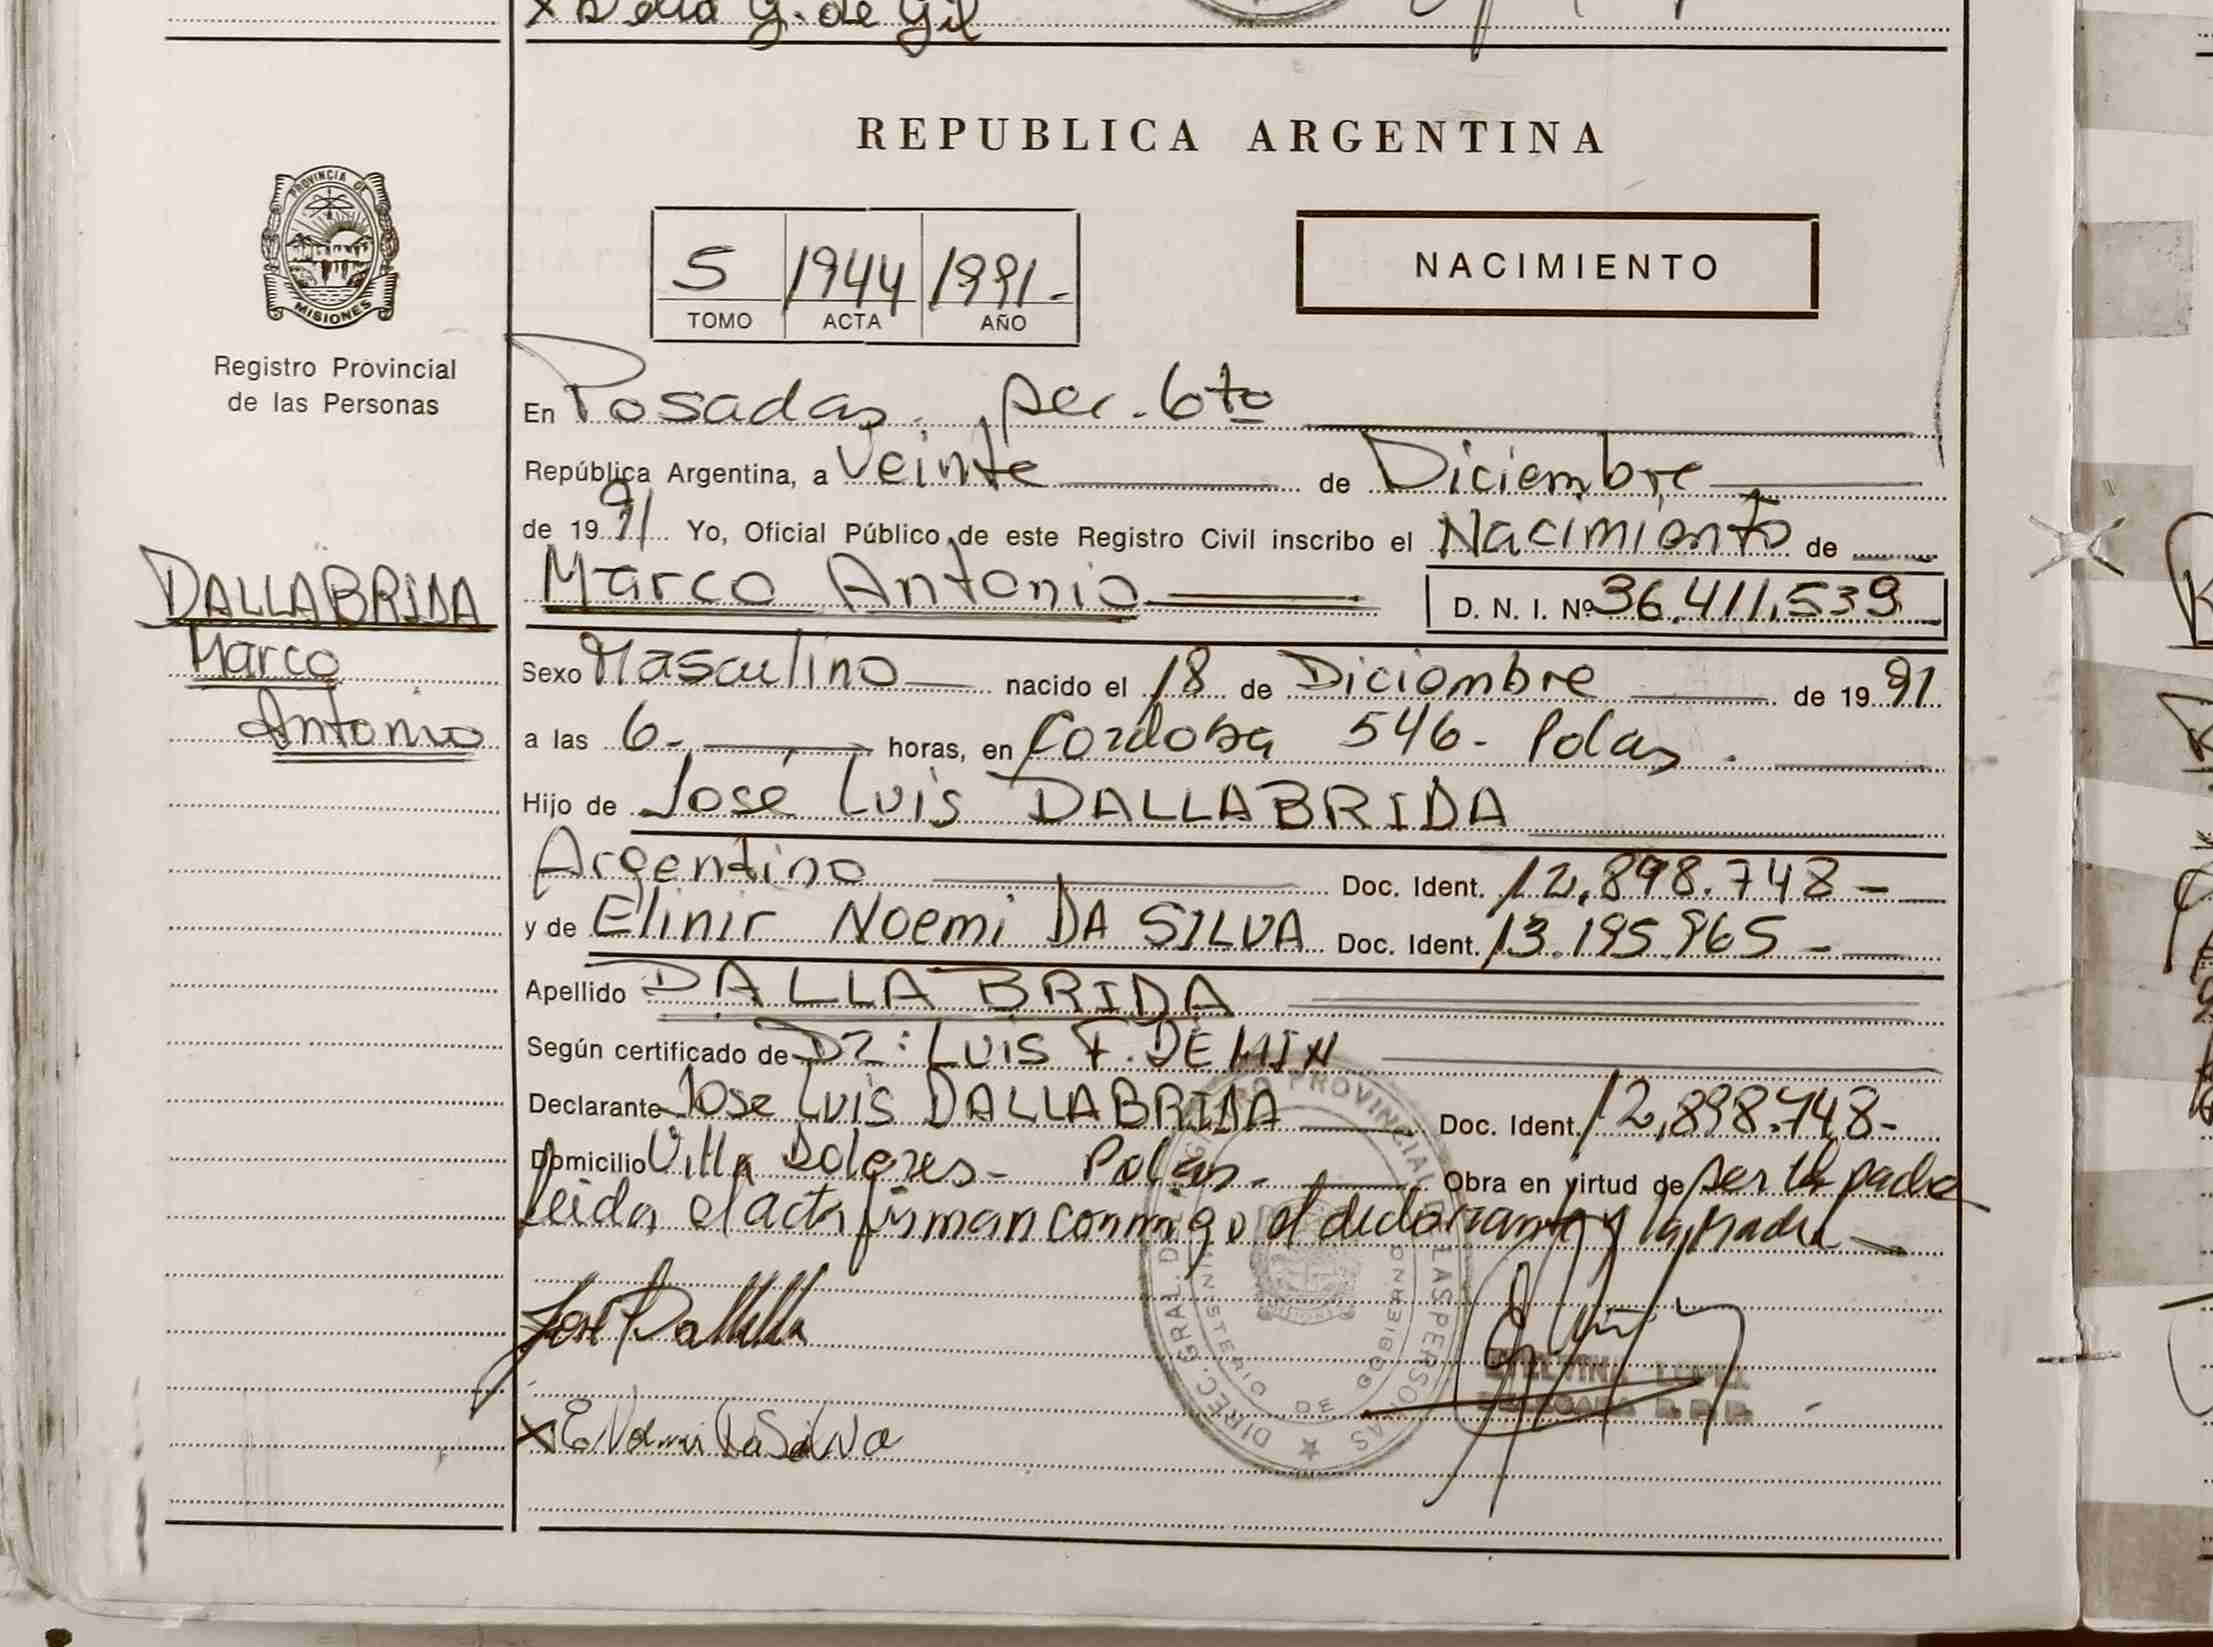 REPUBLICA ARGENTINA
PROVINCIA DE
MISIONES
Registro Provincial
de las Personas
5 1944 1991.-
TOMO ACTA AÑO
NACIMIENTO
DALLABRIDA
Marco
Antonio
En Posadas. per. 6to
República Argentina, a Veinte de Diciembre
de 1991 Yo, Oficial Público de este Registro Civil inscribo el Nacimiento de
Marco Antonio D. N. I. Nº 36.411.539
Sexo Masculino nacido el 18 de Diciembre de 1991
a las 6.- horas, en Cordoba 546- Pdas.
Hijo de José Luis DALLABRIDA
Argentino Doc. Ident. 12.898.748-
y de Elinir Noemi DA SILVA Doc. Ident. 13.195.965-
Apellido DALLABRIDA
Según certificado de Dr: LUIS F. DEMIN
Declarante Jose Luis DALLABRIDA Doc. Ident. 12.898.748-
Domicilio Villa Dolores- Pdas.- Obra en virtud de ser el padre
leida el acta firman conmigo el declarante y la madre
DIREC. GRAL. DEL REGISTRO PROVINCIAL DE LAS PERSONAS
MINISTERIO DE GOBIERNO
José Dalla
ETELVINA LOPEZ
DELEGADA R.P.P.
x E Noemi Da Silva